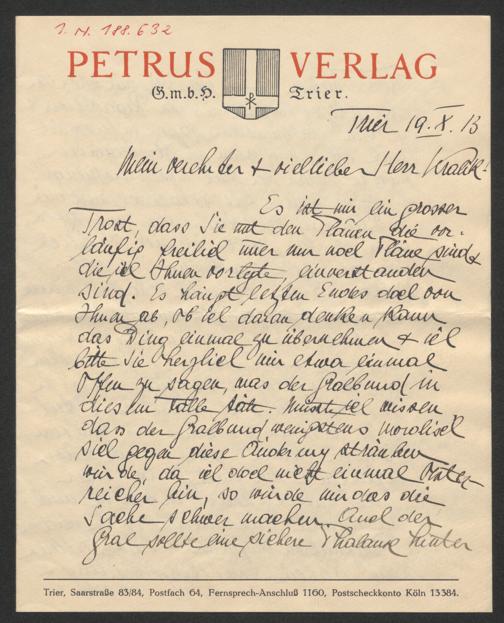 I. N. 188.632
PETRUS VERLAG
G.m.b.H. Trier.
Trier 19. X. 13
Mein verehrter & viellieber Herr Kralik!
Es ist mir ein grosser
Trost, dass Sie mit den Plänen, die vor-
läufig freilich immer nur noch Pläne sind &
die ich Ihnen vorlegte, einverstanden
sind. Es hängt letzten Endes doch von
Ihnen ab, ob ich daran denken kann
das Ding einmal zu übernehmen & ich
bitte Sie herzlich mir etwa einmal
offen zu sagen, was der Gralbund in
diesem Falle täte. Müsste ich wissen
dass der Gralbund wenigstens moralisch
sich gegen diese Änderung sträuben
würde, da ich doch nicht einmal Öster-
reicher bin, so würde mir das die
Sache schwer machen. Auch der
Gral sollte eine sichere Phalanx hinter
Trier, Saarstraße 83/84, Postfach 64, Fernsprech-Anschluß 1160, Postscheckkonto Köln 13384.